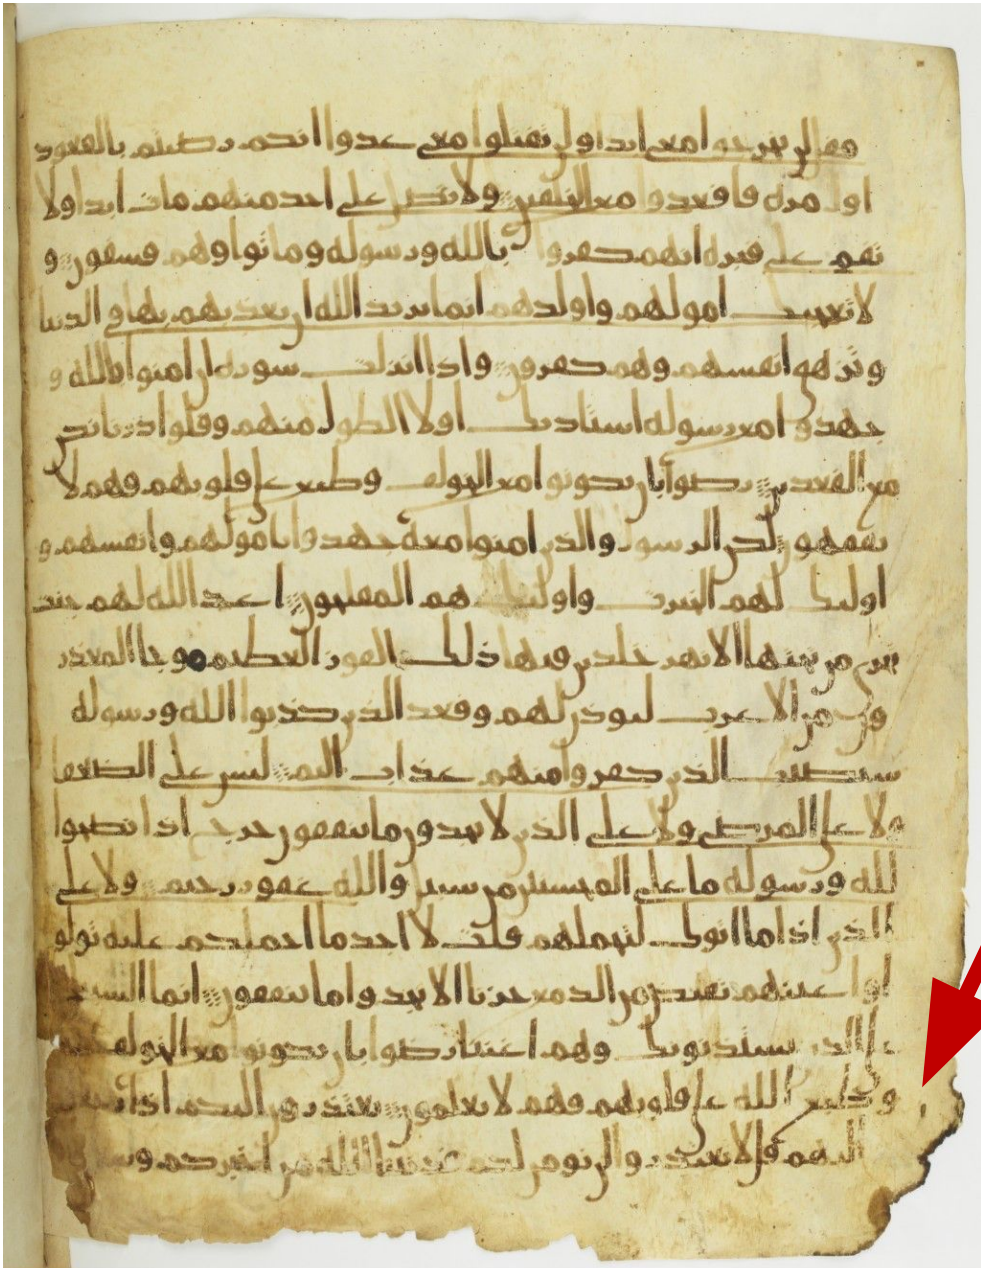 فقل لن تخرجوا معي ابدا ولن تقتلوا معي عدوا انكم رضيتم بالقعود
اول مرة فاقعدوا مع الخلفين ولا تصل على احد منهم مات ابدا ولا
تقم على قبره انهم كفروا بالله ورسوله وماتوا وهم فسقون و
لا تعجبك امولهم واولدهم انما يريد الله ان يعذبهم بها في الدنيا
وتزهق انفسهم وهم كفرون واذا انزلت سورة ان امنوا بالله و
جهدوا مع رسوله استاذنك اولا الطول منهم وقلوا ذرنا نكن
مع القعدين رضوا بان يكونوا مع الخولف وطبع على قلوبهم فهم لا
يفقهون لكن الرسول والذين امنوا معه جهدوا بامولهم وانفسهم و
اوليك لهم الخيرت واوليك هم المفلحون اعد الله لهم جنت
تجري من تحتها الانهر خلدين فيها ذلك الفوز العظيم وجا المعذر
ون من الاعرب ليوذن لهم وقعد الذين كذبوا الله ورسوله
سيصيب الذين كفروا منهم عذاب اليم ليس على الضعفا
ولا على المرضى ولا على الذين لا يجدون ما ينفقون حرج اذا نصحوا
لله ورسوله ما على المحسنين من سبيل والله غفور رحيم ولا على
الذين اذا ما اتوك لتحملهم قلت لا اجد ما احملكم عليه تولو
ا واعينهم تفيض من الدمع حزنا الا يجدوا ما ينفقون انما السبيل
على الذين يستذنونك وهم اغنيا رضوا بان يكونوا مع الخولف
وطبع الله على قلوبهم فهم لا يعلمون يعتذرون اليكم اذا
اليهم قل لا تعتذروا لن نومن لكم قد نبانا الله من اخبركم